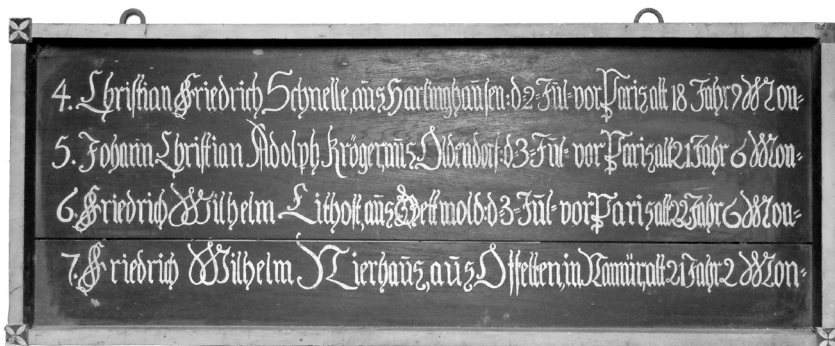 4. Christian Friedrich Schnelle, aus Hartinghausen: d 2- Jul- vor Paris alt 18 Jahr 9 Mon-
5. Johann Christian Adolph Kröger, aus Oldendorf: d 3- Jul- vor Paris alt 21 Jahr 6 Mon-
6. Friedrich Wilhelm Lithoff, aus Dettmold: d 3- Jul- vor Paris alt 22 Jahr 6 Mon-
7. Friedrich Wilhelm Nierhaus, aus Offelten, in Nammür, alt 21 Jahr 2 Mon-